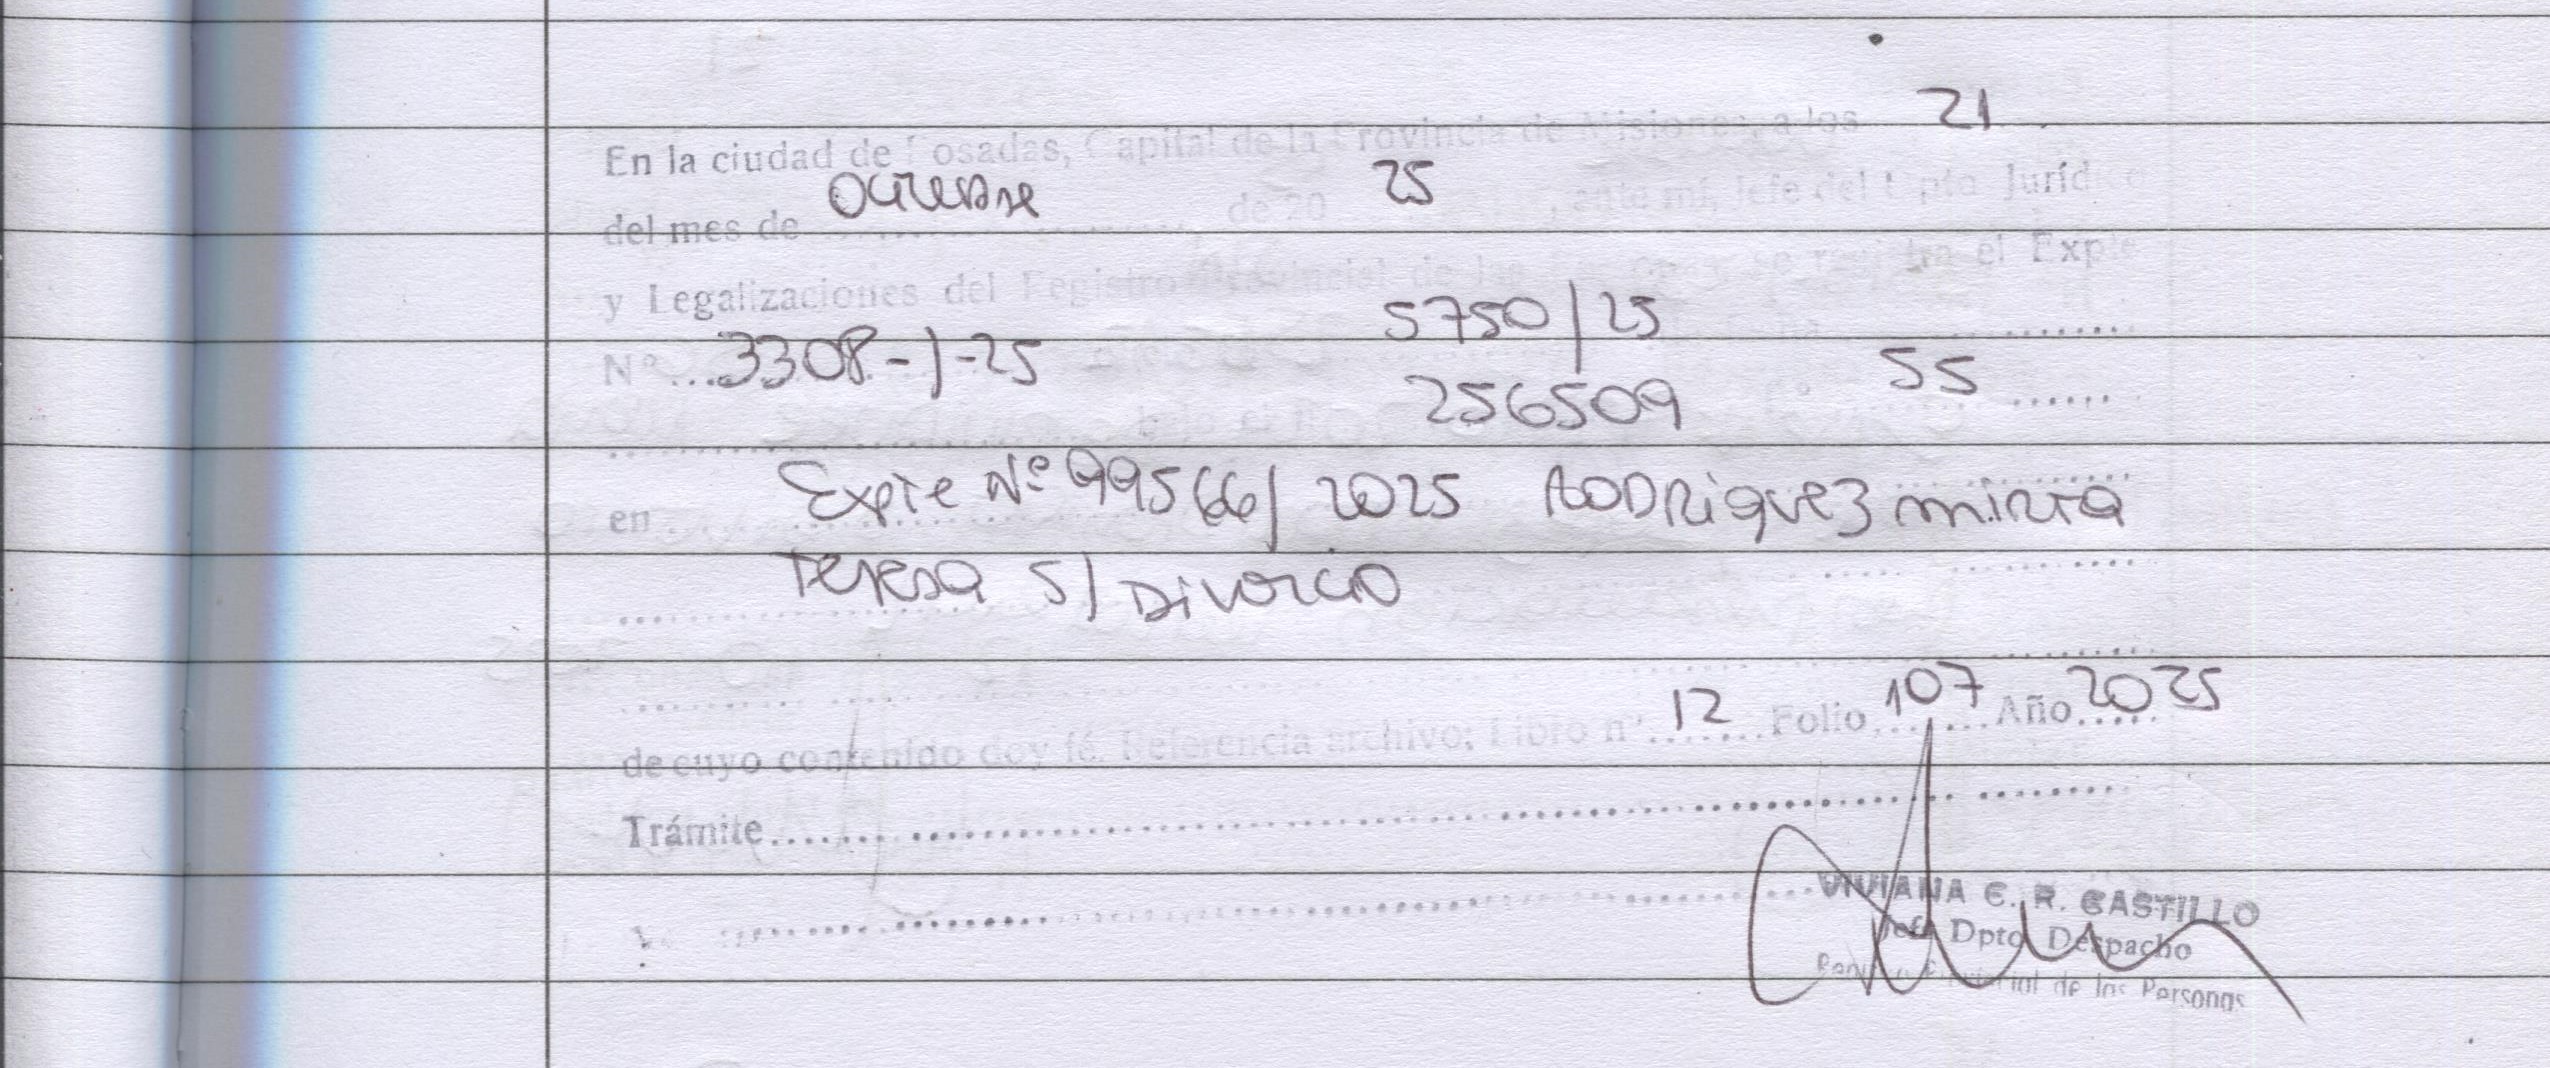 21
En la ciudad de Posadas, Capital de la Provincia de Misiones, a los
octubre 25
del mes de ........ de 20 , ante mí, Jefe del Dpto Juríd
y Legalizaciones del Registro Provincial de las se registra el Expte
5750/25
Nº ...3308-J-25 55 ......
256509
en Expte Nº 99566/2025 RODRiguez mirta
Teresa S/ Divorcio
de cuyo contenido doy fé. Referencia archivo: Libro nº 12 Folio 107 Año 2025
Trámite
VIVIANA E. R. CASTILLO
Jefe Dpto. Despacho
Provincial de las Personas